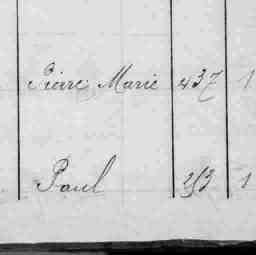 Pierre Marie 437 1
Paul 253 1